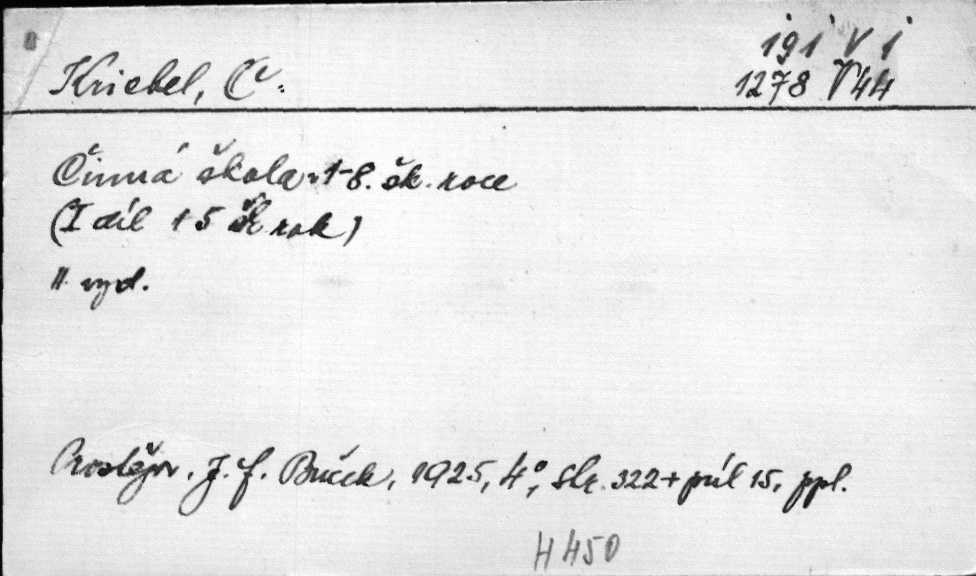 igi V i
Kriebel, Č.
1278 V44
Činná škola 1-8. šk. roce
(I díl 1 5 šk rok)
II. vyd.
Prostějov, J. F. Buček, 1925, 4°, str. 322 + příl 15, ppl.
H 450